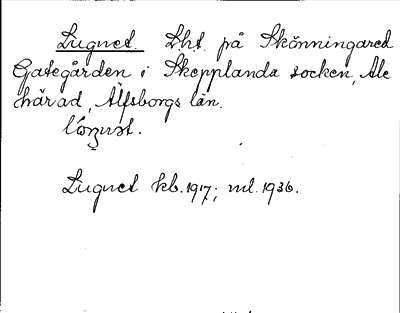 Lugnet. Lht. på Skönningared
Gategården i Skepplanda socken, Ale
härad, Älfsborgs län.
Lugnet kb. 1917; ml. 1936.